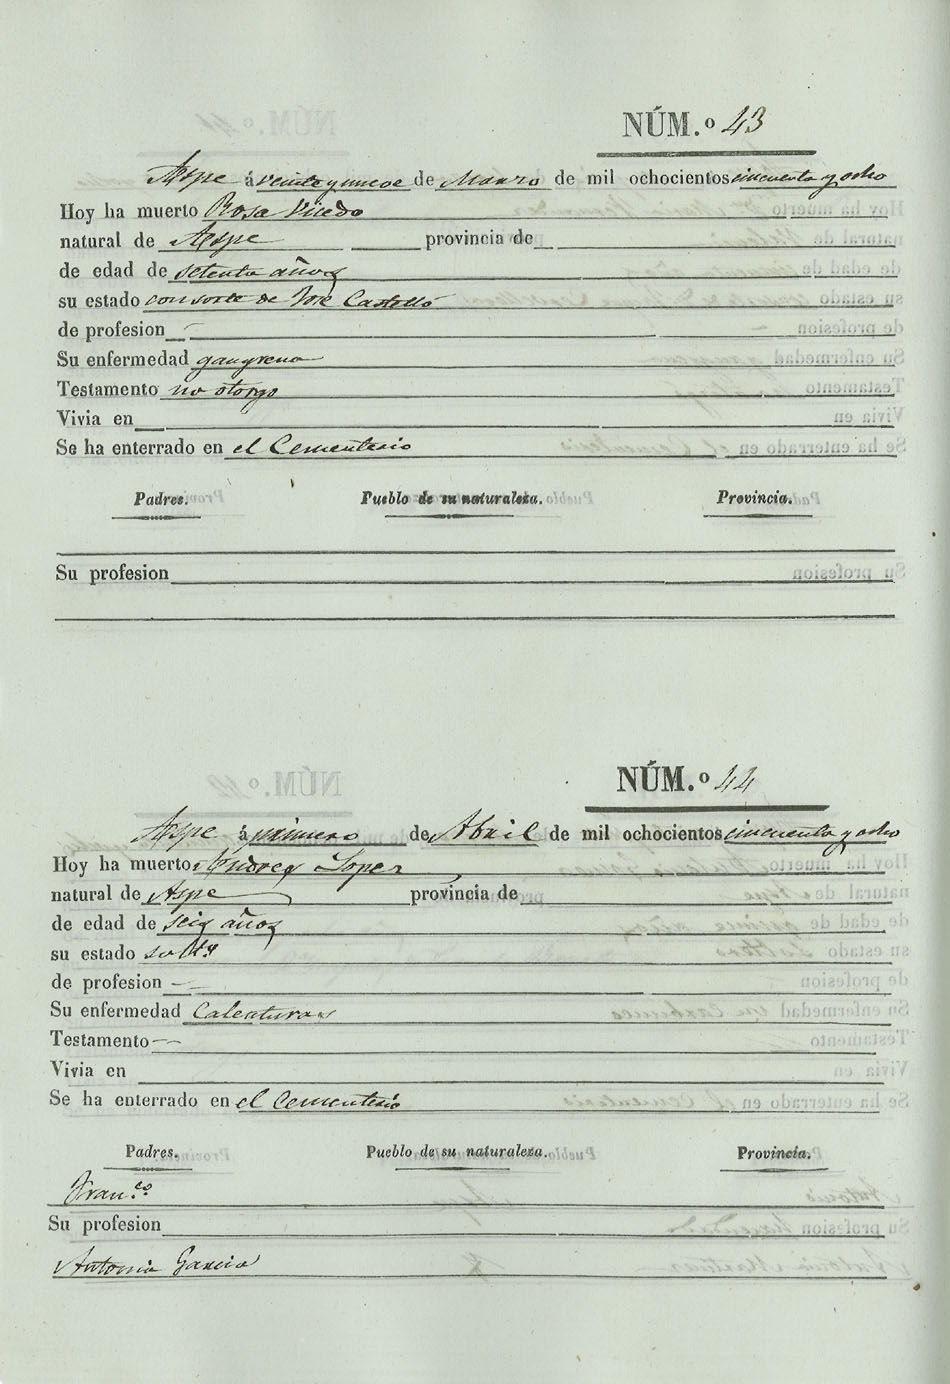 NÚM.º 43
Aspe á veinte y nueve de Marzo de mil ochocientos cincuenta y ocho
Hoy ha muerto Rosa
natural de Aspe provincia de
de edad de setenta años
su estado consorte de José Castelló
de profesion
Su enfermedad gangrena
Testamento no otorgo
Vivia en
Se ha enterrado en el Cementerio
Padres. Pueblo de su naturaleza. Provincia.
Su profesion
NÚM.º 44
Aspe á primero de Abril de mil ochocientos cincuenta y ocho
Hoy ha muerto Andres Lopez
natural de Aspe provincia de
de edad de seis años
su estado
de profesion
Su enfermedad Calenturas
Testamento
Vivia en
Se ha enterrado en el Cementerio
Padres. Pueblo de su naturaleza. Provincia.
Fran.co
Su profesion
Antonia Garcia